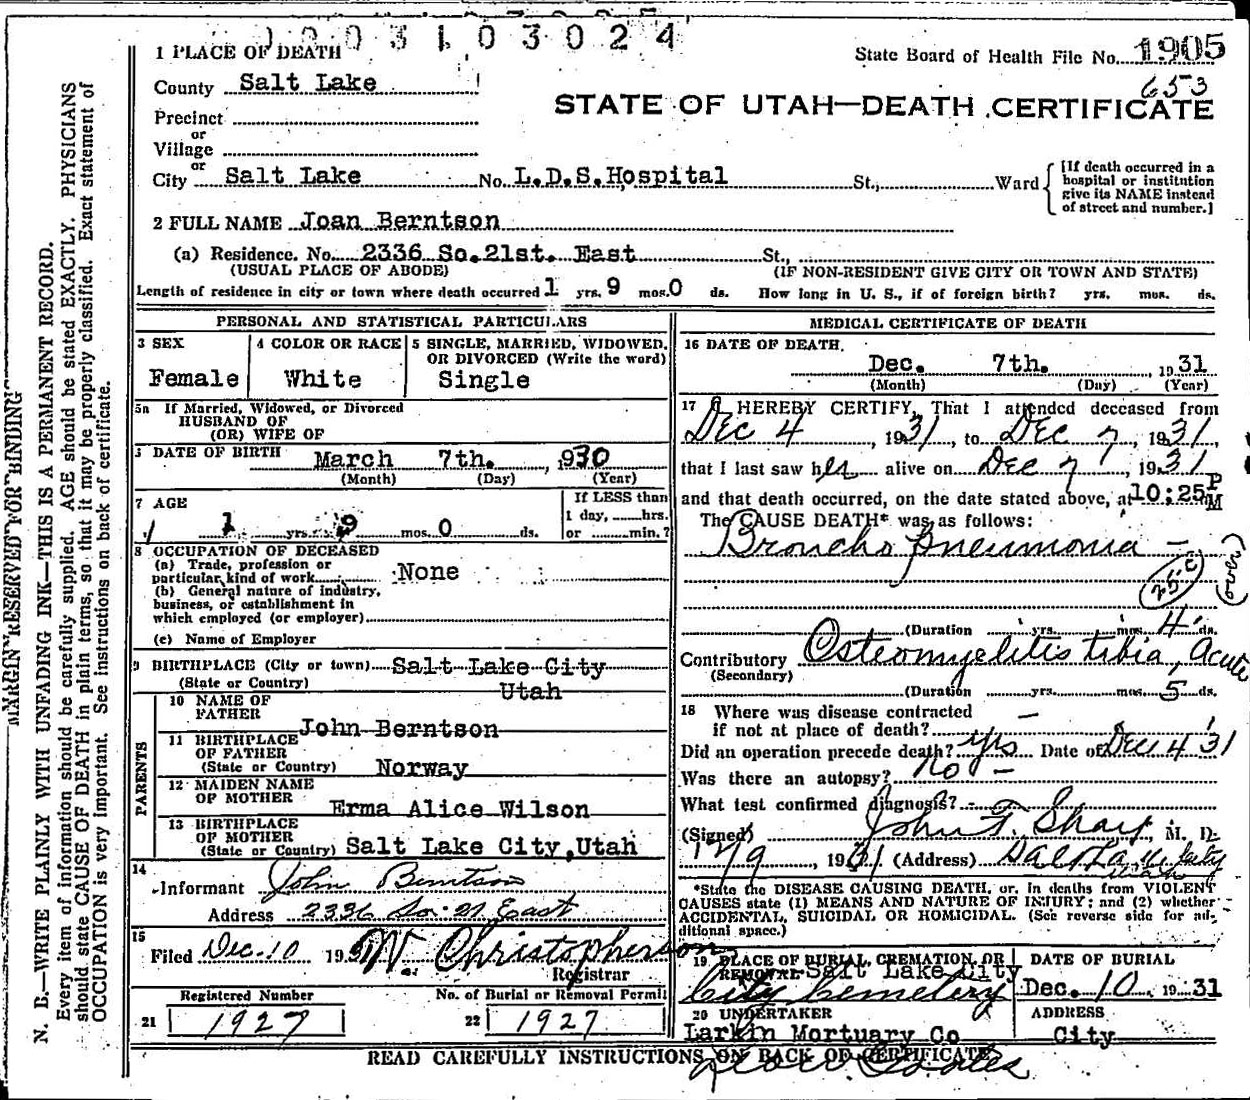 0003103024
1 PLACE OF DEATH
State Board of Health File No. 1905
653
County Salt Lake
STATE OF UTAH—DEATH CERTIFICATE
Precinct
or
Village
or
City Salt Lake No. L.D.S. Hospital St., Ward
[If death occurred in a hospital or institution give its NAME instead of street and number.]
2 FULL NAME Joan Berntson
(a) Residence. No. 2336 So. 21st. East St.,
(USUAL PLACE OF ABODE) (IF NON-RESIDENT GIVE CITY OR TOWN AND STATE)
Length of residence in city or town where death occurred 1 yrs. 9 mos. 0 ds. How long in U. S., if of foreign birth? yrs. mos. ds.
PERSONAL AND STATISTICAL PARTICULARS
3 SEX
Female
4 COLOR OR RACE
White
5 SINGLE, MARRIED, WIDOWED, OR DIVORCED (Write the word)
Single
5a If Married, Widowed, or Divorced
HUSBAND OF
(OR) WIFE OF
DATE OF BIRTH March 7th. , 1930
(Month) (Day) (Year)
7 AGE
1 yrs. 9 mos. 0 ds.
If LESS than
1 day, hrs.
or min.?
8 OCCUPATION OF DECEASED
(a) Trade, profession or
particular kind of work None
(b) General nature of industry,
business, or establishment in
which employed (or employer)
(c) Name of Employer
9 BIRTHPLACE (City or town) Salt Lake City
(State or Country) Utah
PARENTS
10 NAME OF
FATHER John Berntson
11 BIRTHPLACE
OF FATHER
(State or Country) Norway
12 MAIDEN NAME
OF MOTHER Erma Alice Wilson
13 BIRTHPLACE
OF MOTHER
(State or Country) Salt Lake City, Utah
14
Informant John Berntson
Address 2336 So. 21 East
15
Filed Dec. 10 1931 W. Christopherson
Registrar
Registered Number
21 1927
No. of Burial or Removal Permit
22 1927
MEDICAL CERTIFICATE OF DEATH
16 DATE OF DEATH
Dec. 7th. 1931
(Month) (Day) (Year)
17 I HEREBY CERTIFY, That I attended deceased from
Dec 4, 1931, to Dec 7, 1931,
that I last saw her alive on Dec 7, 1931
and that death occurred, on the date stated above, at 10:25 P M
The CAUSE DEATH* was as follows:
Broncho pneumonia —
(over)
(Duration yrs. mos. 4 ds.
Contributory Osteomyelitis tibia, Acute
(Secondary)
(Duration yrs. mos. 5 ds.
18 Where was disease contracted
if not at place of death? —
Did an operation precede death? yes Date of Dec 4 '31
Was there an autopsy? No —
What test confirmed diagnosis? -
(Signed) John F. Sharp, M. D.
12/9 1931 (Address) Salt Lake City
Utah
*State the DISEASE CAUSING DEATH, or, in deaths from VIOLENT
CAUSES state (1) MEANS AND NATURE OF INJURY; and (2) whether
ACCIDENTAL, SUICIDAL OR HOMICIDAL. (See reverse side for additional space.)
19 PLACE OF BURIAL, CREMATION, OR
REMOVAL Salt Lake City
City Cemetery
DATE OF BURIAL
Dec. 10, 1931
20 UNDERTAKER
Larkin Mortuary Co
ADDRESS
City
READ CAREFULLY INSTRUCTIONS ON BACK OF CERTIFICATE
MARGIN RESERVED FOR BINDING
N. B.—WRITE PLAINLY WITH UNFADING INK—THIS IS A PERMANENT RECORD.
Every item of information should be carefully supplied. AGE should be stated EXACTLY. PHYSICIANS
should state CAUSE OF DEATH in plain terms, so that it may be properly classified. Exact statement of
OCCUPATION is very important. See instructions on back of certificate.